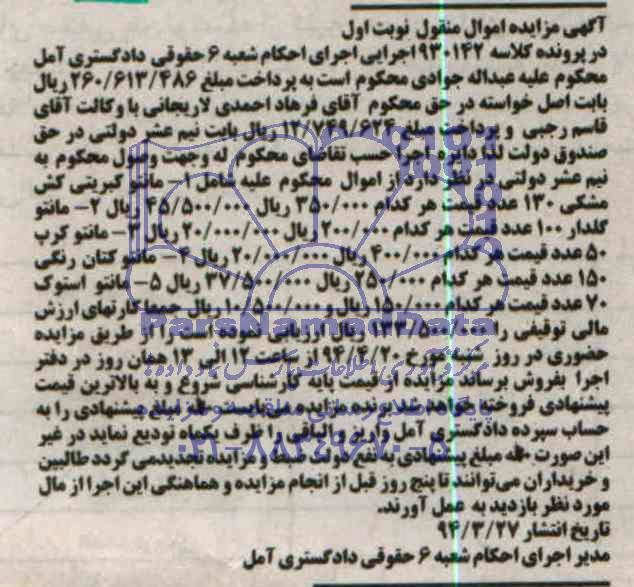 آگهی مزایده اموال منقول نوبت اول
در پرونده کلاسه ۹۳۰۱۴۲ اجرایی اجرای احکام شعبه ۶ حقوقی دادگستری آمل
محکوم علیه عبداله جوادی محکوم است به پرداخت مبلغ ۲۶۰/۶۱۳/۴۸۶ ریال
بابت اصل خواسته در حق محکوم آقای فرهاد احمدی لاریجانی با وکالت آقای
قاسم رجبی و پرداخت مبلغ ۱۲/۷۴۹/۶۲۴ ریال بابت نیم عشر دولتی در حق
صندوق دولت لذا دایره اجرا حسب تقاضای محکوم له وجهت وصول محکوم به
نیم عشر دولتی در نظر دارد از اموال محکوم علیه شامل ۱- مانتو کبریتی کش
مشکی ۱۳۰ عدد قیمت هر کدام ۳۵۰/۰۰۰ ریال ۴۵/۵۰۰/۰۰۰ ریال ۲- مانتو
گلدار ۱۰۰ عدد قیمت هر کدام ۲۰۰/۰۰۰ ریال ۲۰/۰۰۰/۰۰۰ ریال ۳- مانتو کرپ
۵۰ عدد قیمت هر کدام ۴۰۰/۰۰۰ ریال ۲۰/۰۰۰/۰۰۰ ریال ۴- مانتو کتان رنگی
۱۵۰ عدد قیمت هر کدام ۲۵۰/۰۰۰ ریال ۳۷/۵۰۰/۰۰۰ ریال ۵- مانتو استوک
۷۰ عدد قیمت هر کدام ۱۵۰/۰۰۰ ریال و ۱۰/۵۰۰/۰۰۰ ریال جمعا کارتهای ارزش
مالی توقیفی را ۱۳۳/۵۰۰/۰۰۰ ریال ارزیابی نموده است را از طریق مزایده
حضوری در روز شنبه مورخ ۹۴/۴/۲۰ از ساعت ۱۲ الی ۱۳ همان روز در دفتر
اجرا بفروش برساند مزایده از قیمت پایه کارشناسی شروع و به بالاترین قیمت
پیشنهادی فروخته خواهد شد برنده مزایده می بایست مبلغ پیشنهادی را به
حساب سپرده دادگستری آمل واریز و الباقی را ظرف یکماه تودیع نماید در غیر
این صورت مبلغ پیشنهادی به نفع دولت ضبط و مزایده تجدید می گردد طالبین
و خریداران می‌توانند تا پنج روز قبل از انجام مزایده و هماهنگی این اجرا از مال
مورد نظر بازدید به عمل آورند.
تاریخ انتشار ۹۴/۳/۲۷
مدیر اجرای احکام شعبه ۶ حقوقی دادگستری آمل
ParsNamadData
۰۲۱-۸۸۳۴۹۶۷۰-۵